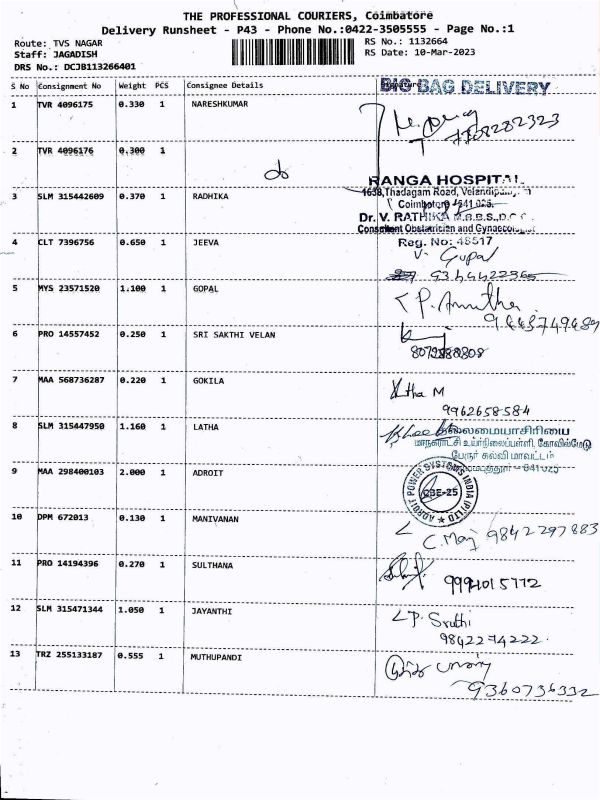 THE PROFESSIONAL COURIERS, Coimbatore
Delivery Runsheet - P43 - Phone No.:0422-3505555 - Page No.:1
Route: TVS NAGAR RS No.: 1132664
Staff: JAGADISH RS Date: 10-Mar-2023
DRS No.: DCJB113266401
S No Consignment No Weight PCS Consignee Details BIG BAG DELIVERY
1 TVR 4096175 0.330 1 NARESHKUMAR
7708282323
2 TVR 4096176 0.300 1
do
RANGA HOSPITAL
1638, Thadagam Road,
3 SLM 315442609 0.370 1 RADHIKA
Coimbatore 641 025.
Dr. V. RATHIKA M.B.B.S.,
Consultant Obstetrician and Gynaecologist
4 CLT 7396756 0.650 1 JEEVA Reg. No: 48517
V. Gopal
5 MYS 23571520 1.100 1 GOPAL
6 PRO 14557452 0.250 1 SRI SAKTHI VELAN
7 MAA 568736287 0.220 1 GOKILA
Latha M
9962658584
8 SLM 315447950 1.160 1 LATHA
தலைமையாசிரியை
மாநகராட்சி உயர்நிலைப்பள்ளி, கோவில்மேடு
பேரூர் கல்வி மாவட்டம்
641 025
9 MAA 298400103 2.000 1 ADROIT
ADROIT POWER SYSTEMS INDIA (P) LTD
CBE-25
10 DPM 672013 0.130 1 MANIVANAN
C. Mani 9842297883
11 PRO 14194396 0.270 1 SULTHANA
12 SLM 315471344 1.050 1 JAYANTHI
P. Sruthi
9842274222.
13 TRZ 255133187 0.555 1 MUTHUPANDI
9360736332